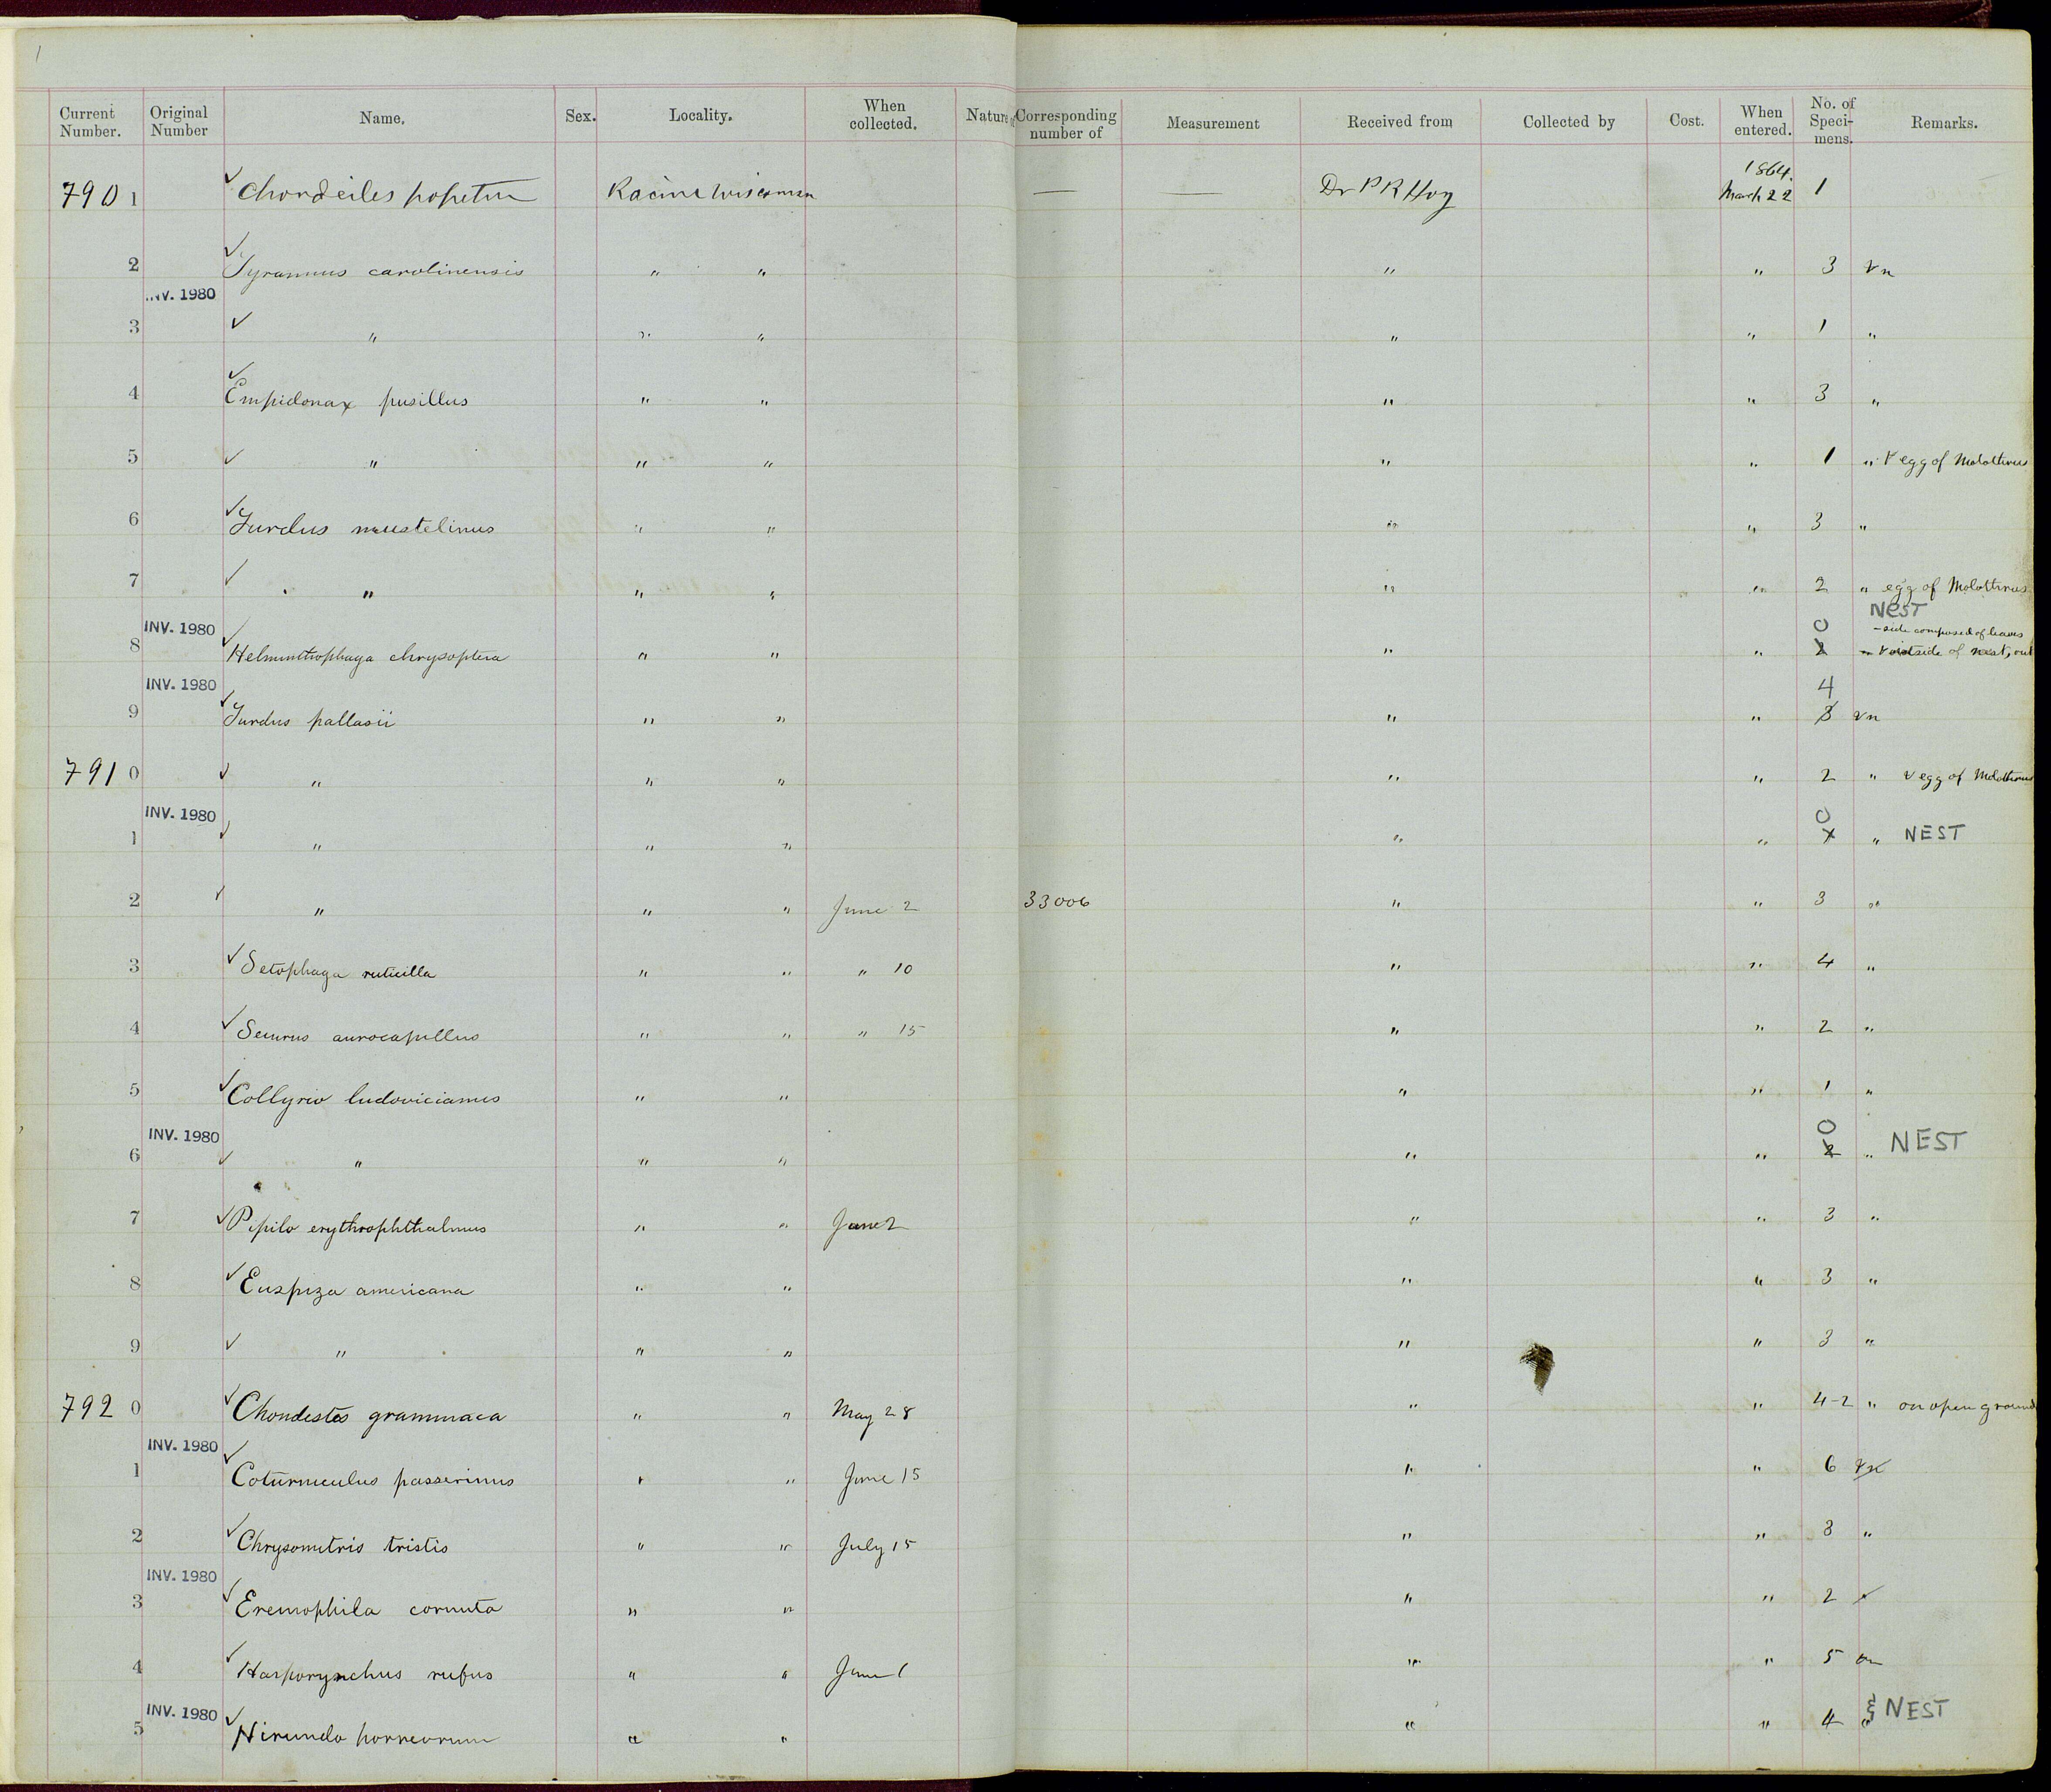 Current Number. Original Number Name. Sex. Locality. When collected. Nature of Corresponding number of Measurement Received from Collected by Cost. When entered. No. of Speci-mens. Remarks.
1864.
790 1 Chordeiles popetue Racine Wisconsin — — Dr P R Hoy March 22 1
2 Tyrannus carolinensis " " " " 3 & n
INV. 1980
3 " " " " " 1 "
4 Empidonax pusillus " " " " 3 "
5 " " " " " 1 " & egg of Molothrus
6 Turdus mustelinus " " " " 3 "
7 " " " " " 2 " egg of Molothrus
NEST
INV. 1980 0 - side composed of leaves
8 Helminthophaga chrysoptera " " " " 2 " & outside of nest, out
INV. 1980 4
9 Turdus pallasii " " " " 3 & n
791 0 " " " " " 2 " & egg of Molothrus
INV. 1980 0
1 " " " " " " NEST
2 " " " June 2 33006 " " 3 "
3 Setophaga ruticilla " " " 10 " " 4 "
4 Seiurus aurocapillus " " " 15 " " 2 "
5 Collyrio ludovicianus " " " " 1 "
INV. 1980 0
6 " " " " " 2 " NEST
7 Pipilo erythrophthalmus " " June 2 " " 3 "
8 Euspiza americana " " " " 3 "
9 " " " " " 3 "
792 0 Chondestes grammaca " " May 28 " " 4-2 " on open ground
INV. 1980
1 Coturniculus passerinus " " June 15 " " 6 & n
2 Chrysometris tristis " " July 15 " " 3 "
INV. 1980
3 Eremophila cornuta " " " " 2
4 Harporynchus rufus " " June 1 " " 5
INV. 1980 & NEST
5 Hirundo horreorum " " " " 4 "